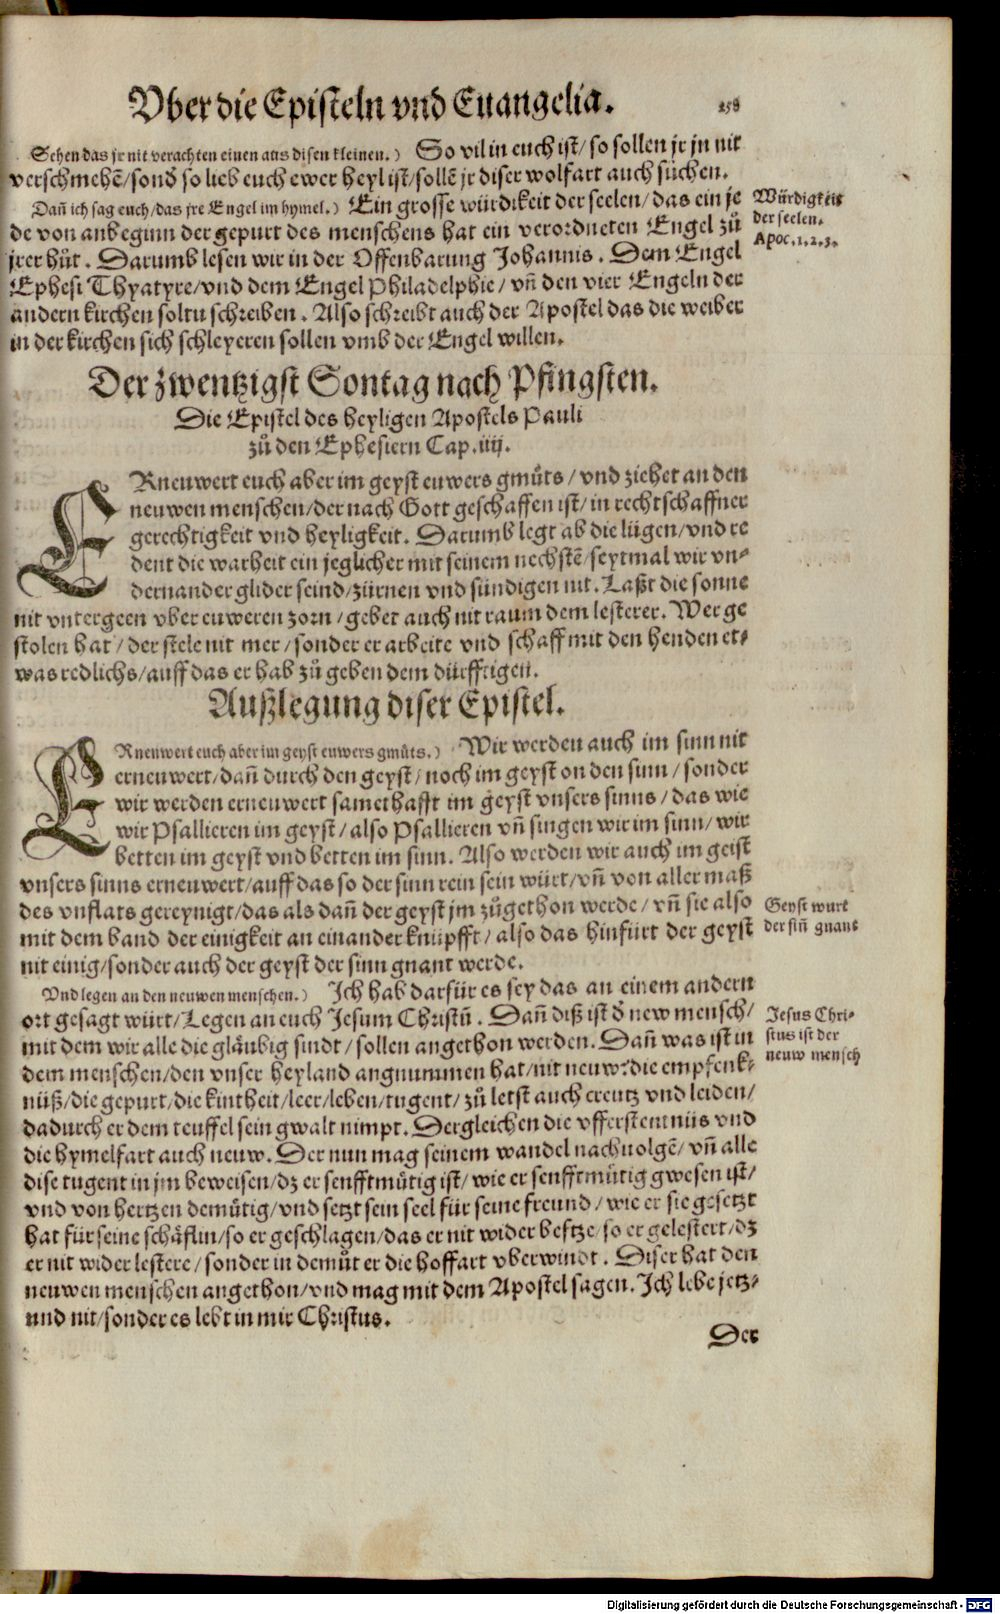 Vber die Episteln vnd Euangelia.
258
Sehen das jr nit verachten einen aus disen kleinen.) So vil in euch ist/ so sollen jr jn nit
verschmehẽ/ sond so lieb euch ewer heyl ist/ sollẽ jr diser wolfart auch süchen.
Dañ ich sag euch/ das jre Engel im hymel.) Ein grosse würdikeit der seelen/ das ein je
de von anbeginn der gepurt des menschens hat ein verordneten Engel zů
jrer hůt. Darumb lesen wir in der Offenbarung Johannis. Dem Engel
Ephesi Thyatyre/ vnd dem Engel Philadelphie/ vñ den vier Engeln der
andern kirchen soltu schreiben. Also schreibt auch der Apostel das die weiber
in der kirchen sich schleyeren sollen vmb der Engel willen.
Würdigkeit
der seelen.
Apoc. 1. 2. 3.
Der zwentzigst Sontag nach Pfingsten.
Die Epistel des heyligen Apostels Pauli
zů den Ephesiern Cap. iiij.
ERneuwert euch aber im geyst euwers gmůts/ vnd ziehet an den
neuwen menschen/ der nach Gott geschaffen ist/ in rechtschaffner
gerechtigkeit vnd heyligkeit. Darumb legt ab die lügen/ vnd re
dent die warheit ein jeglicher mit seinem nechstẽ/ seytmal wir vn-
dernander glider seind/ zürnen vnd sündigen nit. Laßt die sonne
nit vntergeen vber euweren zorn/ gebet auch nit raum dem lesterer. Wer ge
stolen hat/ der stele nit mer/ sonder er arbeite vnd schaff mit den henden et-
was redlichs/ auff das er hab zů geben dem dürfftigen.
Außlegung diser Epistel.
ERneuwert euch aber im geyst euwers gmůts.) Wir werden auch im sinn nit
erneuwert/ dañ durch den geyst/ noch im geyst on den sinn/ sonder
wir werden erneuwert samethafft im geyst vnsers sinns/ das wie
wir Psallieren im geyst/ also Psallieren vñ singen wir im sinn/ wir
betten im geyst vnd betten im sinn. Also werden wir auch im geist
vnsers sinns erneuwert/ auff das so der sinn rein sein würt/ vñ von aller maß
des vnflats gereynigt/ das als dañ der geyst jm zůgethon werde/ vñ sie also
mit dem band der einigkeit an einander knüpfft/ also das hinfürt der geyst
nit einig/ sonder auch der geyst der sinn gnant werde.
Geyst wurt
der siñ gnant
Vnd legen an den neuwen menschen.) Ich hab darfür es sey das an einem andern
ort gesagt würt/ Legen an euch Jesum Christũ. Dañ diß ist ď new mensch/
mit dem wir alle die gläubig sindt/ sollen angethon werden. Dañ was ist in
dem menschen/ den vnser heyland angnummen hat/ nit neuw? die empfenk-
nüß/ die gepurt/ die kintheit/ leer/ leben/ tugent/ zů letst auch creutz vnd leiden/
dadurch er dem teuffel sein gwalt nimpt. Dergleichen die vfferstentnüs vnd
die hymelfart auch neuw. Der nun mag seinem wandel nachuolgẽ/ vñ alle
dise tugent in jm beweisen/ dz er senfftmůtig ist/ wie er senfftmůtig gwesen ist/
vnd von hertzen demůtig/ vnd setzt sein seel für seine freund/ wie er sie gesetzt
hat für seine schäflin/ so er geschlagen/ das er nit wider beftze/ so er gelestert/ dz
er nit wider lestere/ sonder in demůt er die hoffart vberwindt. Diser hat den
neuwen menschen angethon/ vnd mag mit dem Apostel sagen. Ich lebe jetz-
und nit/ sonder es lebt in mir Christus.
Jesus Chri-
stus ist der
neuw mensch
Der
Digitalisierung gefördert durch die Deutsche Forschungsgemeinschaft - DFG